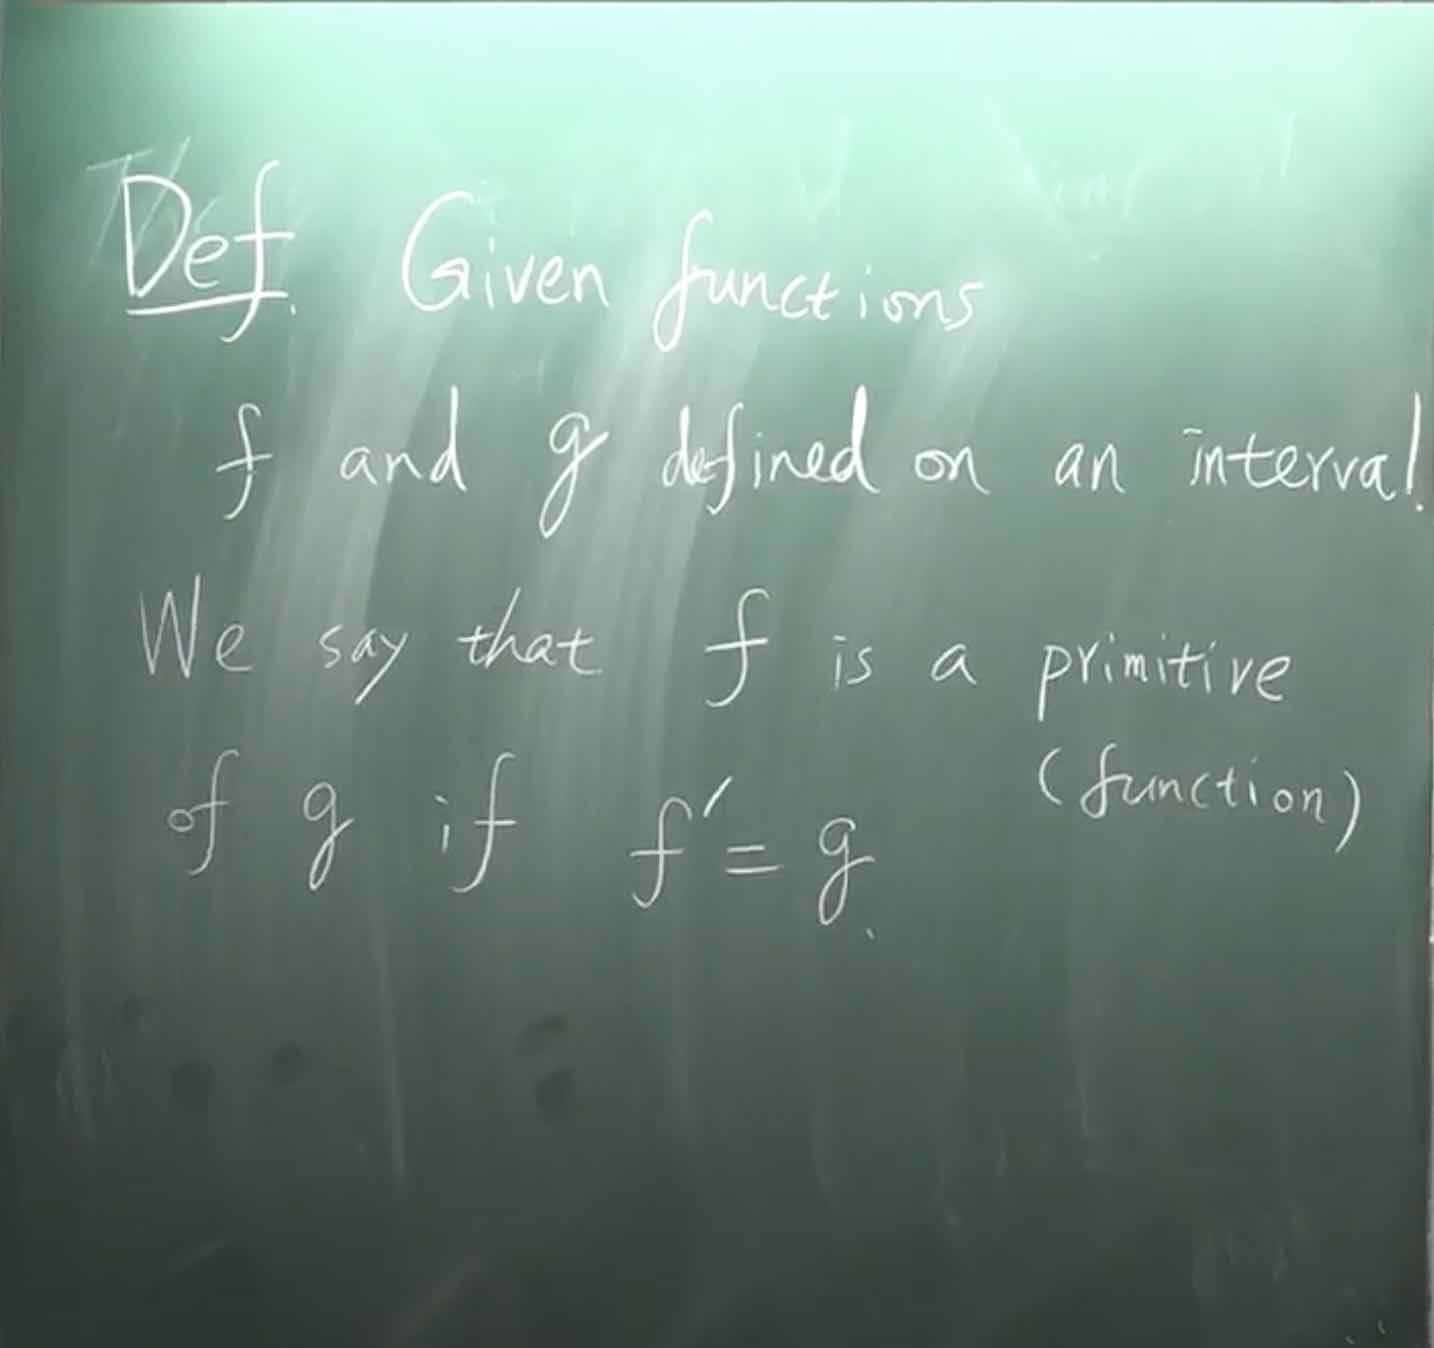 Def. Given functions
f and g defined on an interval.
We say that f is a primitive
(function)
of g if f' = g.